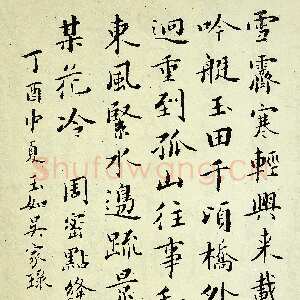 雪霽寒輕興来載
吟艇玉田千頃橋外
迥重到孤山往事
東風緊水邊疏景
某花冷 周密點絳
丁酉中夏玉如吳家琭